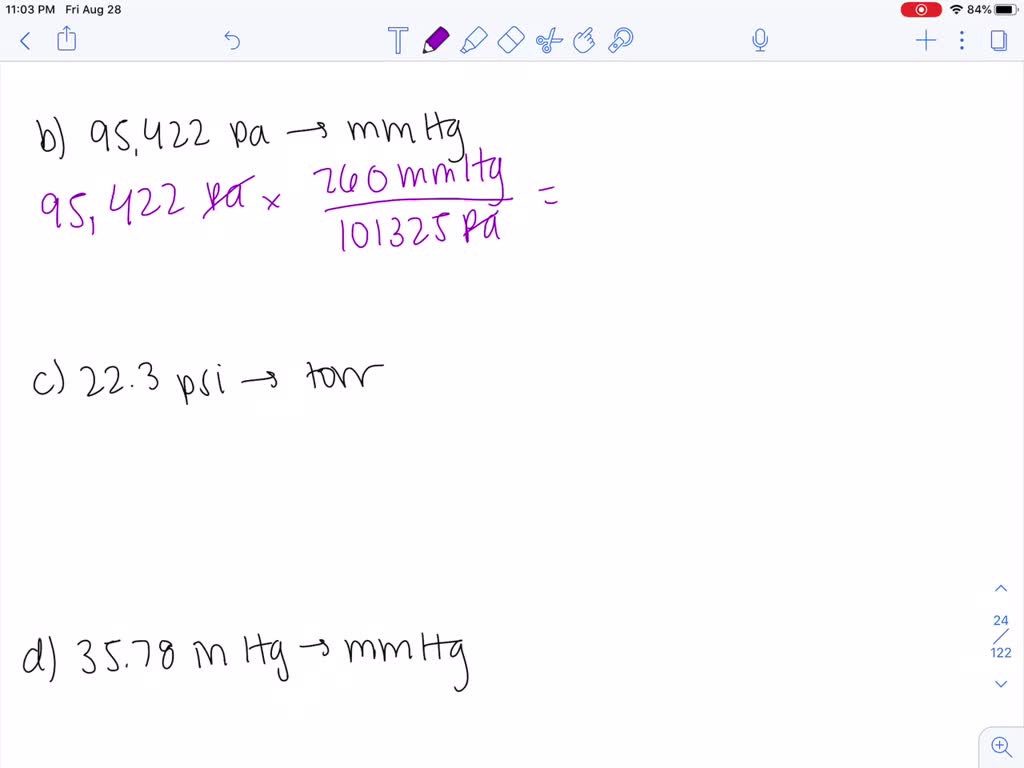 11:03 PM Fri Aug 28
84%
T
b) 95,422 pa → mmHg
95,422 pa × 760 mmHg =
101325 pa
c) 22.3 psi → torr
d) 35.78 in Hg → mmHg
24
122